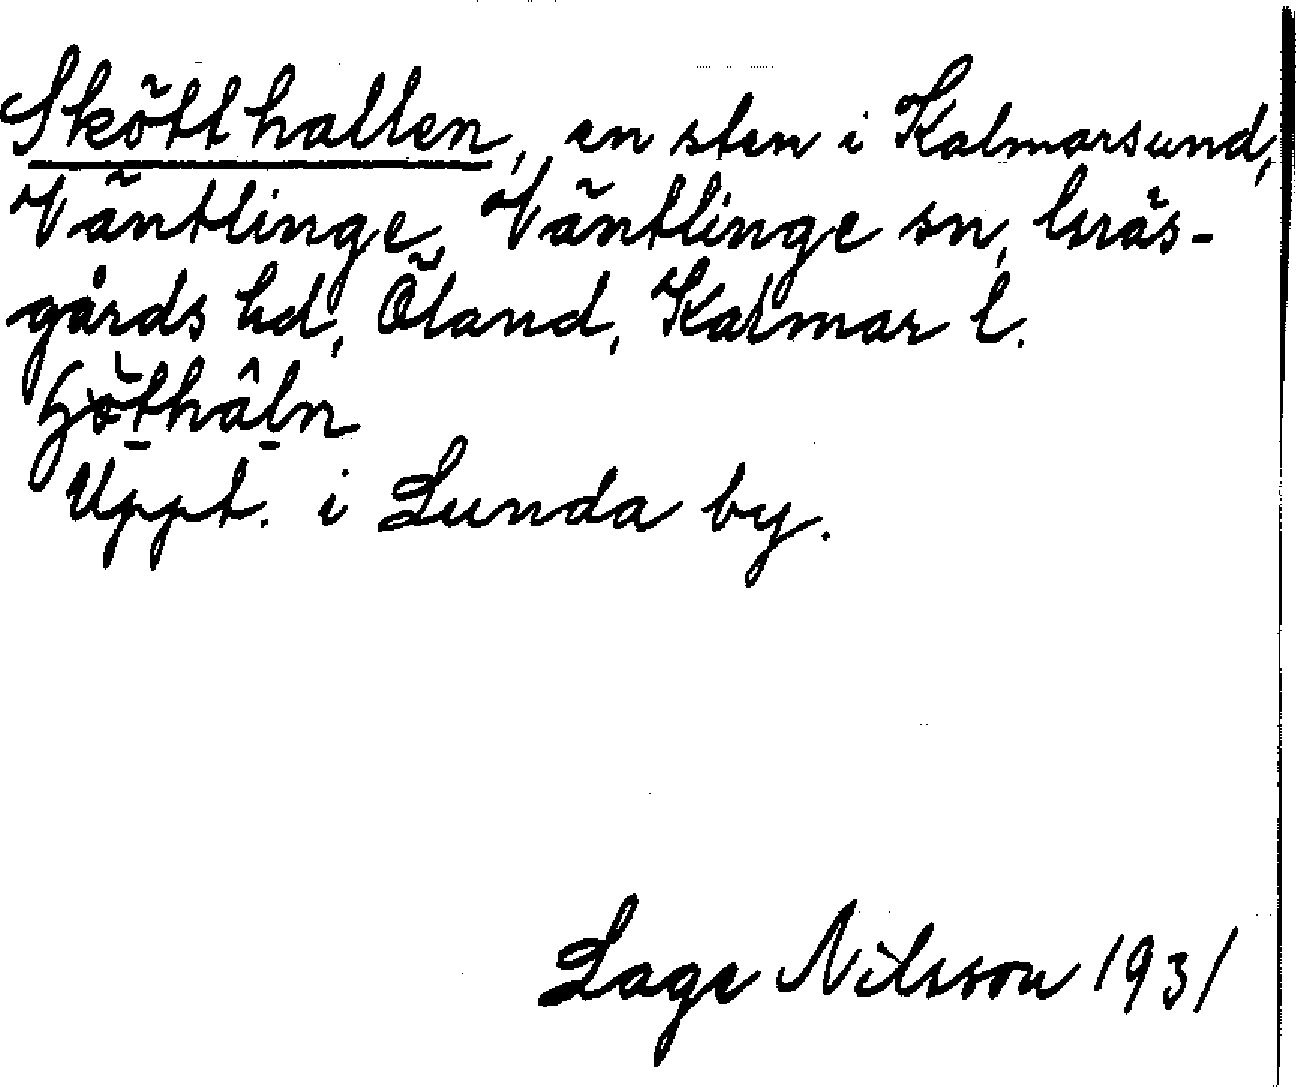 Skötthallen, en sten i Kalmarsund,
Väntlinge, Väntlinge sn, Gräs-
gårds hd, Öland, Kalmar l.
Uppt. i Lunda by.
Lage Nilsson 1931